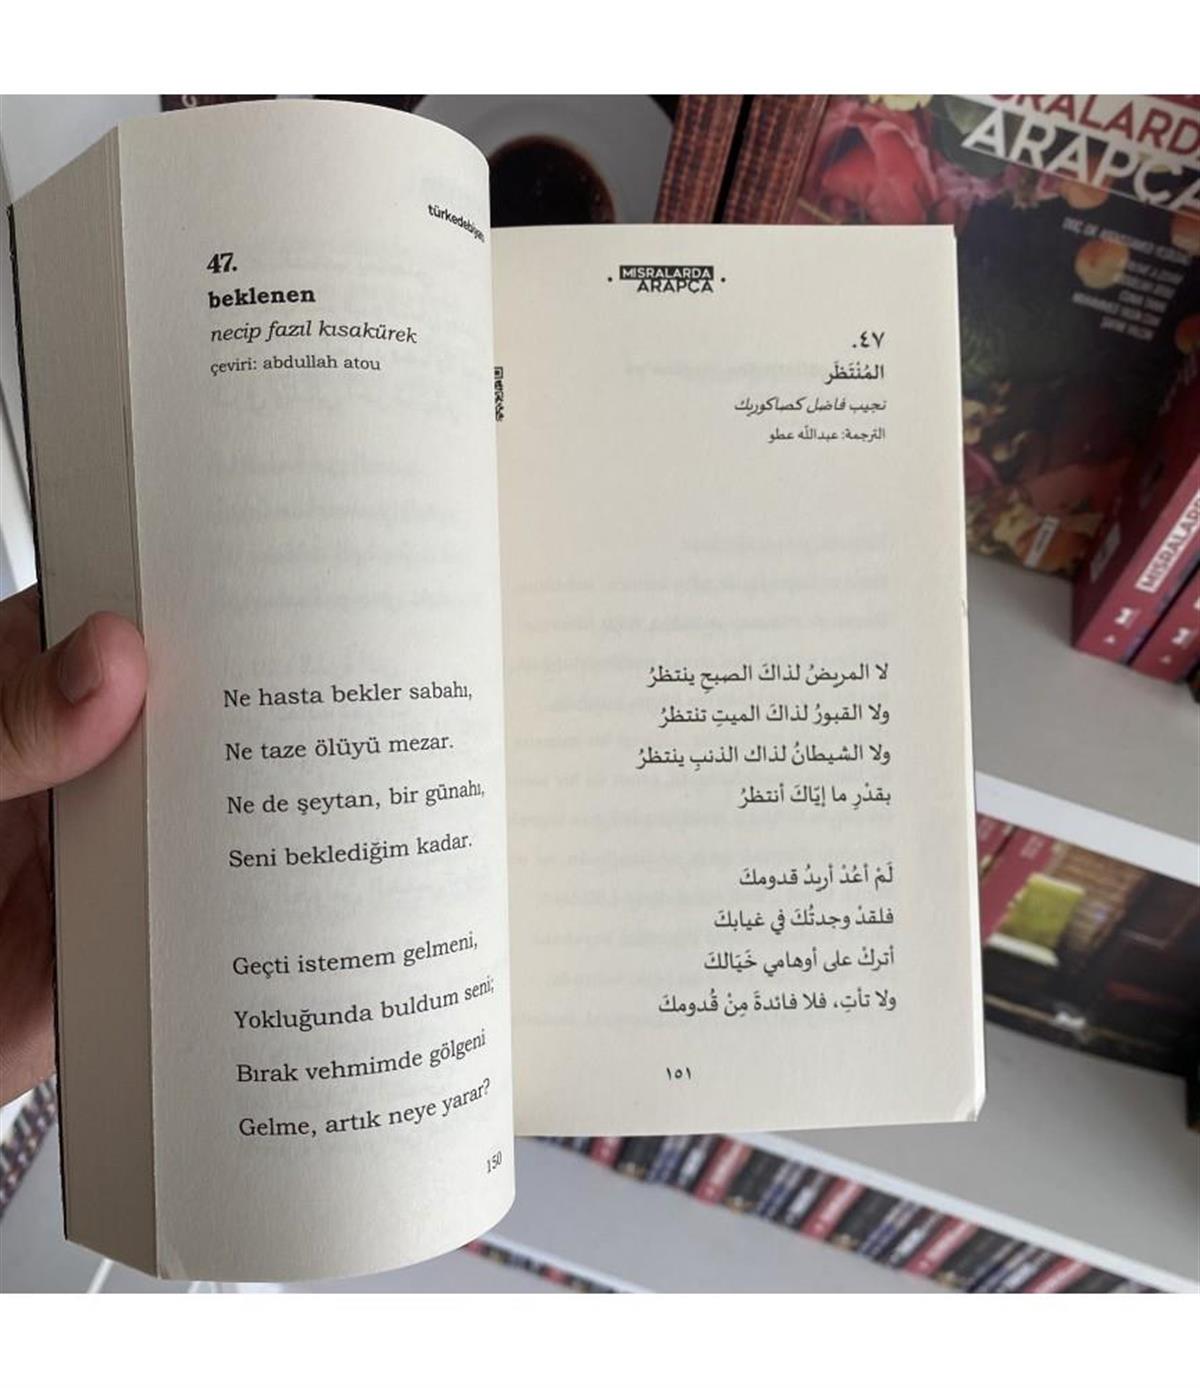 türkedebiyatı
47.
beklenen
necip fazıl kısakürek
çeviri: abdullah atou
Ne hasta bekler sabahı,
Ne taze ölüyü mezar.
Ne de şeytan, bir günahı,
Seni beklediğim kadar.
Geçti istemem gelmeni,
Yokluğunda buldum seni;
Bırak vehmimde gölgeni
Gelme, artık neye yarar?
150
MISRALARDA
ARAPÇA
٤٧.
المُنْتَظَر
نجيب فاضل كصاكوريك
الترجمة: عبدالله عطو
لا المريضُ لذاكَ الصبحِ ينتظرُ
ولا القبورُ لذاكَ الميتِ تنتظرُ
ولا الشيطانُ لذاك الذنبِ ينتظرُ
بقدْرِ ما إيّاكَ أنتظرُ
لَمْ أعُدْ أريدُ قدومكَ
فلقدْ وجدتُكَ في غيابكَ
أتركْ على أوهامي خَيَالكَ
ولا تأتِ، فلا فائدةَ مِنْ قُدومكَ
١٥١
MISRALARDA
ARAPÇA
MISRALARDA